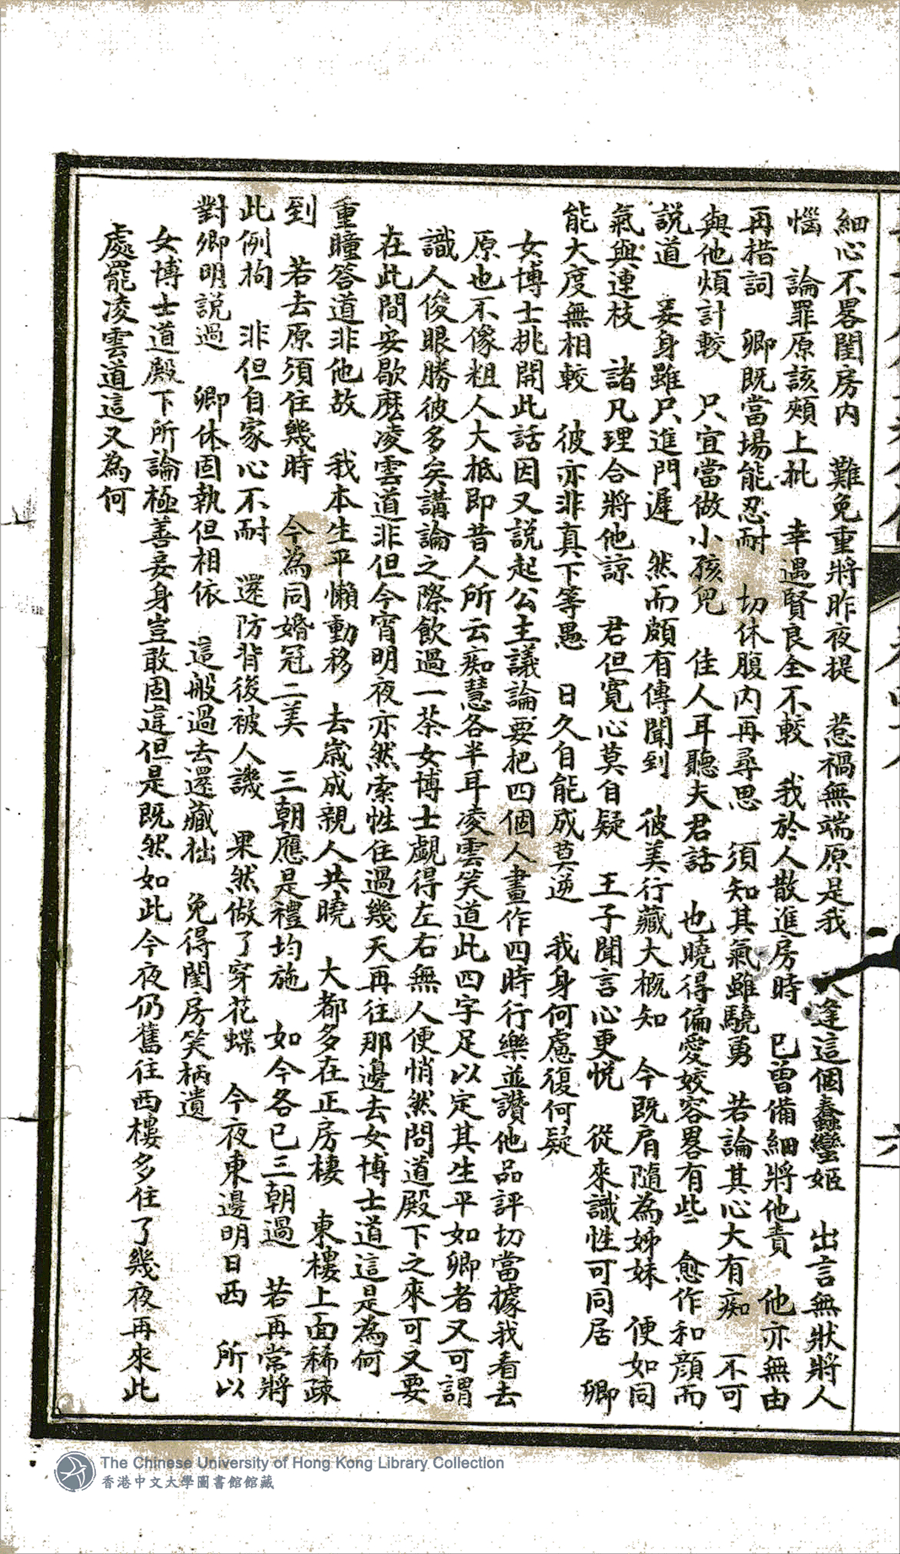 細心不畧閨房内　難免重將昨夜提　惹禍無端原是我　逢這個蠢蠻姬　出言無狀將人
惱　論罪原該頰上批　幸遇賢良全不較　我於人散進房時　已曾備細將他責　他亦無由
再措詞　卿既當場能忍耐　切休腹内再尋思　須知其氣雖驍勇　若論其心大有痴　不可
與他煩計較　只宜當做小孩兒　佳人耳聽夫君話　也曉得偏愛姣容畧有些　愈作和顔而
説道　妾身雖只進門遲　然而頗有傳聞到　彼美行藏大概知　今既肩隨為姊妹　便如同
氣與連枝　諸凡理合將他諒　君但寬心莫自疑　王子聞言心更悦　從來識性可同居　卿
能大度無相較　彼亦非真下等愚　日久自能成莫逆　我身何慮復何疑
女博士挑開此話因又説起公主議論要把四個人畫作四時行樂並讚他品評切當據我看去
原也不像粗人大抵即昔人所云痴慧各半耳凌雲笑道此四字足以定其生平如卿者又可謂
識人俊眼勝彼多矣講論之際飲過一茶女博士覷得左右無人便悄然問道殿下之來可又要
在此間安歇麽凌雲道非但今宵明夜亦然索性住過幾天再往那邊去女博士道這是為何
重瞳答道非他故　我本生平懶動移　去歲成親人共曉　大都多在正房棲　東樓上面稀疎
到　若去原須住幾時　今為同婚冠二美　三朝應是禮均施　如今各已三朝過　若再常將
此例拘　非但自家心不耐　還防背後被人譏　果然做了穿花蝶　今夜東邊明日西　所以
對卿明説過　卿休固執但相依　這般過去還藏拙　免得閨房笑柄遺
女博士道殿下所論極善妾身豈敢固違但是既然如此今夜仍舊往西樓多住了幾夜再來此
處罷凌雲道這又為何
The Chinese University of Hong Kong Library Collection
香港中文大學圖書館館藏